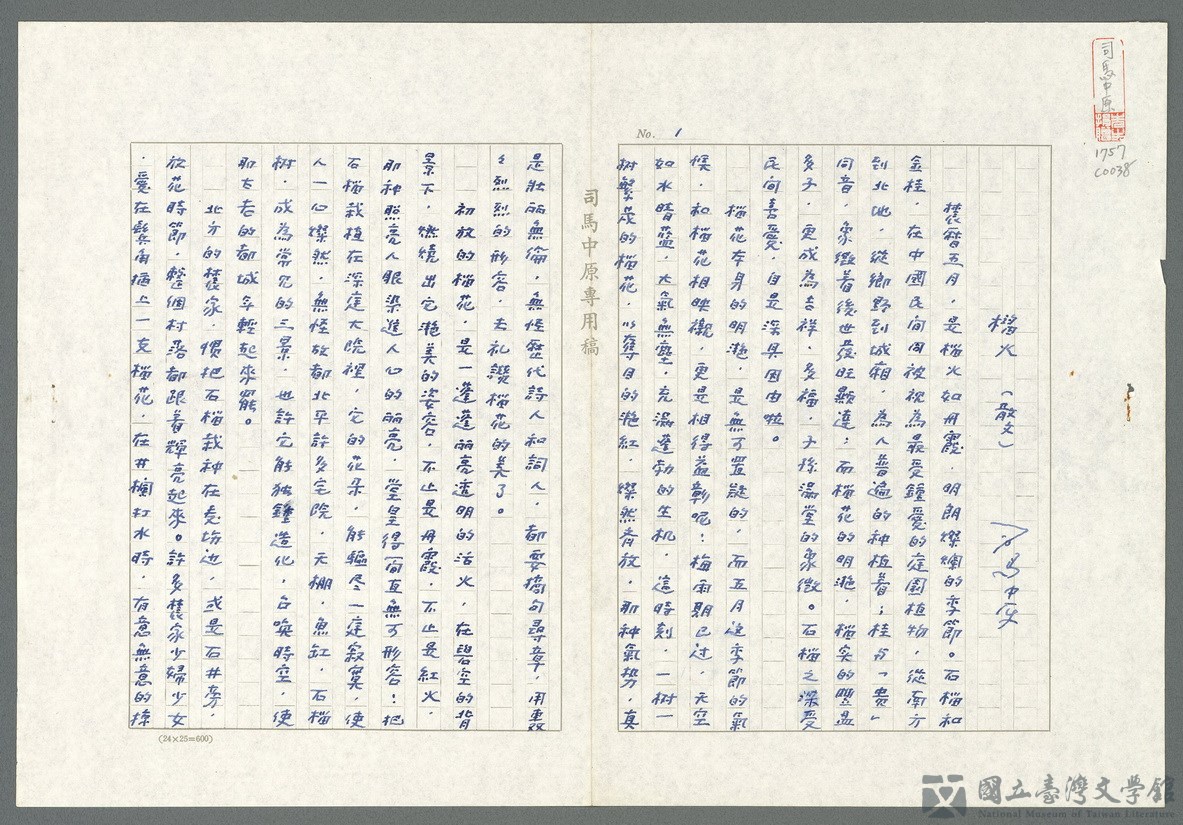 司馬中原
1757
C0038
No. 1
榴火 （散文） 司馬中原
農曆五月，是榴火如丹霞，明朗燦爛的季節。石榴和
金桂，在中國民間同被視為最受鍾愛的庭園植物，從南方
到北地，從鄉野到城廂，為人普遍的種植着；桂与「貴」
同音，象徵着後世發旺顯達；而榴花的明滟，榴实的豐盈
多子，更成為吉祥，多福，子孫滿堂的象徵。石榴之深受
民间喜愛，自是深具因由啦。
榴花本身的明滟，是無可置疑的，而五月這季節的氣
候，和榴花相映襯，更是相得益彰呢！梅雨期已过，天空
如水晴藍，大氣無塵，充滿蓬勃的生机，這時刻，一樹一
樹繁茂的榴花，以奪目的滟紅，燦然吞放，那种氣势，真
司馬中原專用稿
是壯丽無倫，無怪歷代詩人和詞人，都要摘句尋章，用轰
轰烈烈的形容，去礼讚榴花的美了。
初放的榴花，是一蓬蓬丽亮透明的活火，在碧空的背
景下，燃燒出它滟美的姿容，不止是丹霞，不止是紅火，
那种照亮人眼染進人心的丽亮，堂皇得简直無可形容！把
石榴栽植在深庭大院裡，它的花朵，能驅尽一庭寂寞，使
人一心燦然，無怪故都北平許多宅院，天棚，魚缸，石榴
树，成為常見的三景，也許它能独鍾造化，召喚時空，使
那古老的都城年輕起來罷。
北方的農家，慣把石榴栽种在麦場边，或是石井旁，
放花時節，整個村落都跟着輝亮起來。許多農家少婦少女
，愛在鬓角插上一支榴花，在井欄打水時，有意無意的掠
(24×25=600)
國立臺灣文學館
National Museum of Taiwan Literature